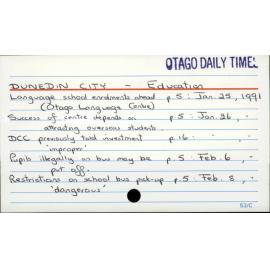 OTAGO DAILY TIMES
DUNEDIN CITY - Education
Language school enrolments ahead p.5 : Jan. 25, 1991
(Otago Language Centre)
Success of centre depends on p.5 : Jan. 26, "
attracting overseas students.
DCC previously told investment p.16 : " "
'improper'
Pupils illegally on bus may be p.5 : Feb. 6, "
put off.
Restrictions on school bus pick-up p.5 : Feb. 8, "
'dangerous'
53/C